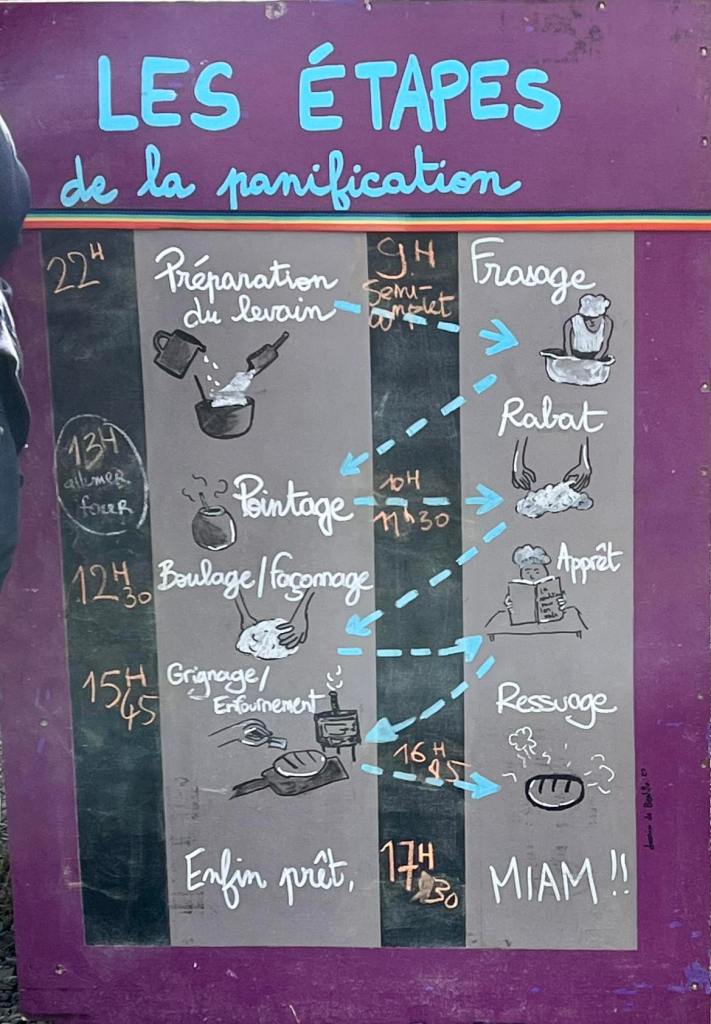 LES ÉTAPES
de la panification
22H
Préparation
du levain
9H
Semi-
complet
Frasage
Rabat
13H
allumer
four
Pointage
10H
11H30
12H30
Boulage/façonnage
Apprêt
15H45
Grignage/
Enfournement
16H45
Ressuage
Enfin prêt,
17H30
MIAM !!